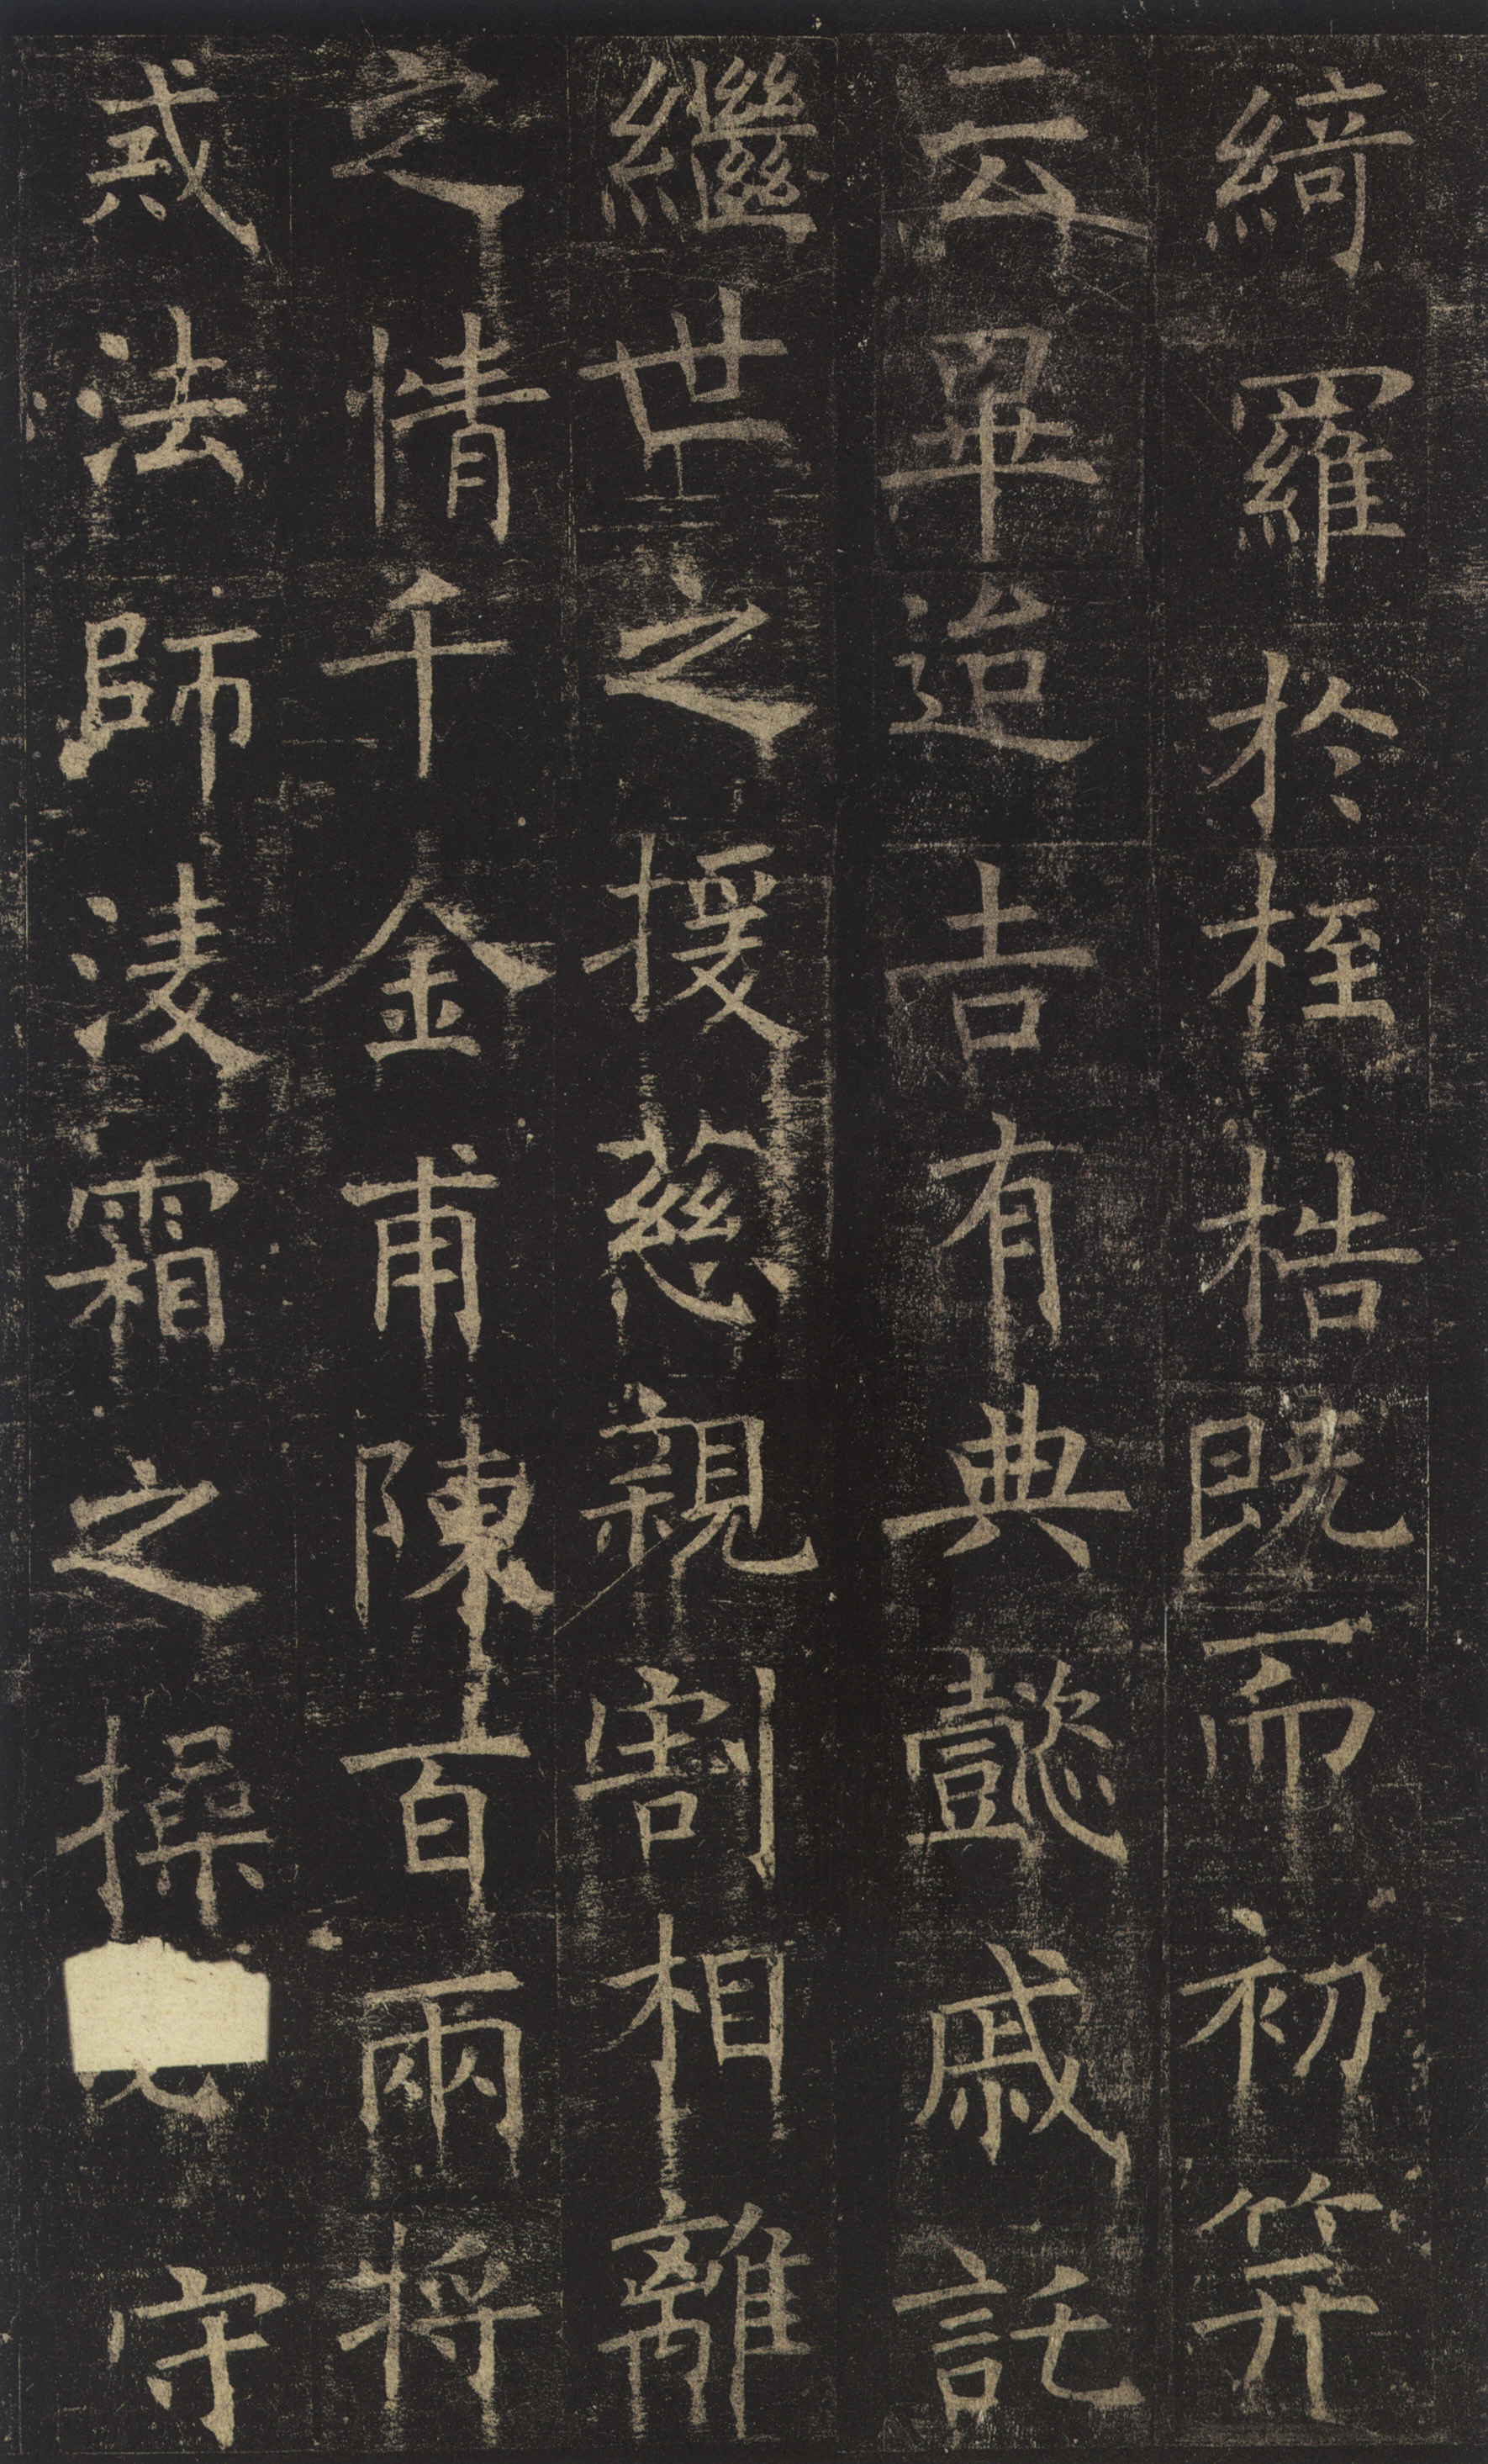 綺羅於桎梏既而初笄
云畢迨吉有典懿戚託
繼世之援慈親割相離
之情千金甫陳百兩将
戒法師凌霜之操守